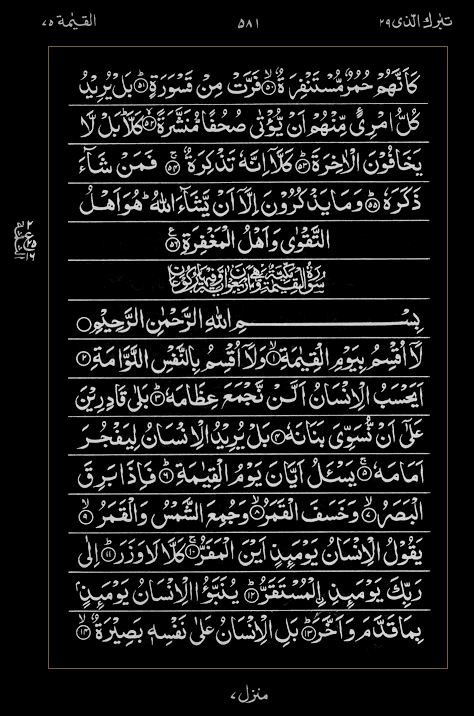 تبٰرك الّذى ٢٩ ٥٨١ القيٰمة ٧٥
كَاَنَّهُمْ حُمُرٌ مُّسْتَنْفِرَةٌ ﴿٥٠﴾ فَرَّتْ مِنْ قَسْوَرَةٍ ﴿٥١﴾ بَلْ يُرِيْدُ
كُلُّ امْرِئٍ مِّنْهُمْ اَنْ يُّؤْتٰى صُحُفًا مُّنَشَّرَةً ﴿٥٢﴾ كَلَّا بَلْ لَّا
يَخَافُوْنَ الْاٰخِرَةَ ﴿٥٣﴾ كَلَّاۤ اِنَّهٗ تَذْكِرَةٌ ﴿٥٤﴾ فَمَنْ شَآءَ
ذَكَرَهٗ ﴿٥٥﴾ وَمَا يَذْكُرُوْنَ اِلَّاۤ اَنْ يَّشَآءَ اللّٰهُ هُوَ اَهْلُ
التَّقْوٰى وَاَهْلُ الْمَغْفِرَةِ ﴿٥٦﴾
سُوْرَةُ الْقِيٰمَةِ مَكِّيَّةٌ
بِسْمِ اللّٰهِ الرَّحْمٰنِ الرَّحِيْمِ
لَاۤ اُقْسِمُ بِيَوْمِ الْقِيٰمَةِ ﴿١﴾ وَلَاۤ اُقْسِمُ بِالنَّفْسِ اللَّوَّامَةِ ﴿٢﴾
اَيَحْسَبُ الْاِنْسَانُ اَلَّنْ نَّجْمَعَ عِظَامَهٗ ﴿٣﴾ بَلٰى قَادِرِيْنَ
عَلٰۤى اَنْ نُّسَوِّىَ بَنَانَهٗ ﴿٤﴾ بَلْ يُرِيْدُ الْاِنْسَانُ لِيَفْجُرَ
اَمَامَهٗ ﴿٥﴾ يَسْئَلُ اَيَّانَ يَوْمُ الْقِيٰمَةِ ﴿٦﴾ فَاِذَا بَرِقَ
الْبَصَرُ ﴿٧﴾ وَخَسَفَ الْقَمَرُ ﴿٨﴾ وَجُمِعَ الشَّمْسُ وَالْقَمَرُ ﴿٩﴾
يَقُوْلُ الْاِنْسَانُ يَوْمَئِذٍ اَيْنَ الْمَفَرُّ ﴿١٠﴾ كَلَّا لَا وَزَرَ ﴿١١﴾ اِلٰى
رَبِّكَ يَوْمَئِذِ اِلْمُسْتَقَرُّ ﴿١٢﴾ يُنَبَّؤُا الْاِنْسَانُ يَوْمَئِذٍۭ
بِمَا قَدَّمَ وَاَخَّرَ ﴿١٣﴾ بَلِ الْاِنْسَانُ عَلٰى نَفْسِهٖ بَصِيْرَةٌ ﴿١٤﴾
منزل ٧